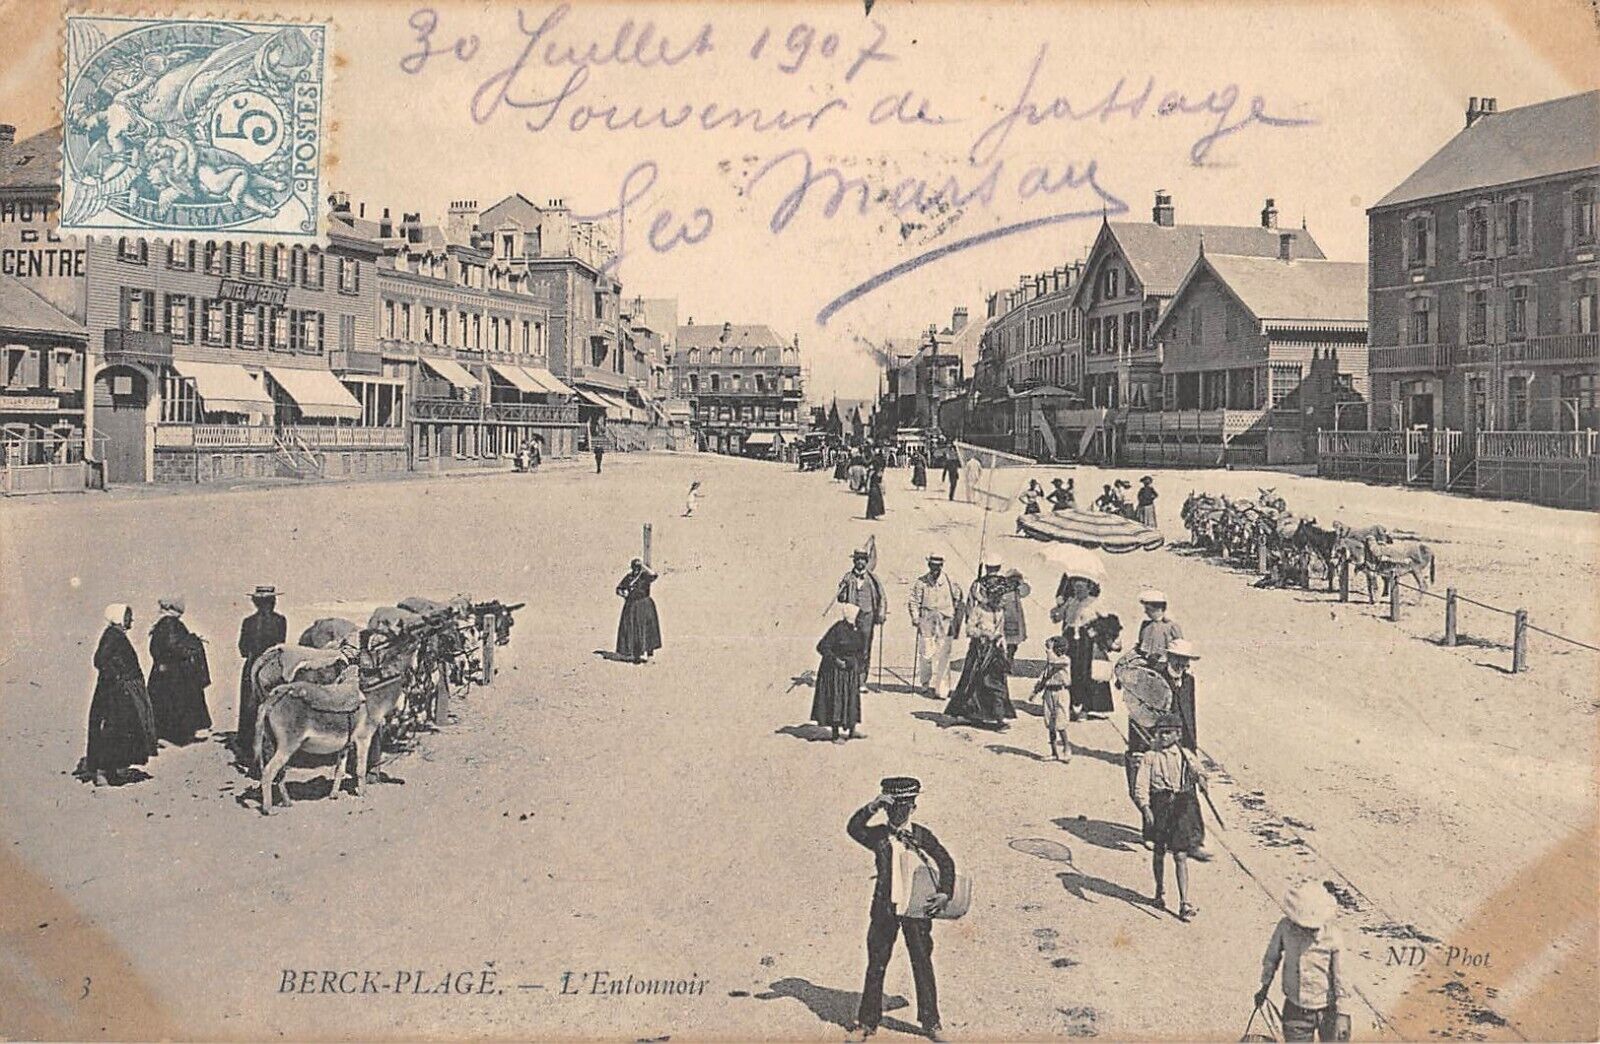 30 Juillet 1907
Souvenir de passage
Geo Marsau
FRANÇAISE
5c
POSTES
HOT
DU
CENTRE
HOTEL DU CENTRE
3
BERCK-PLAGE. — L'Entonnoir
ND Phot